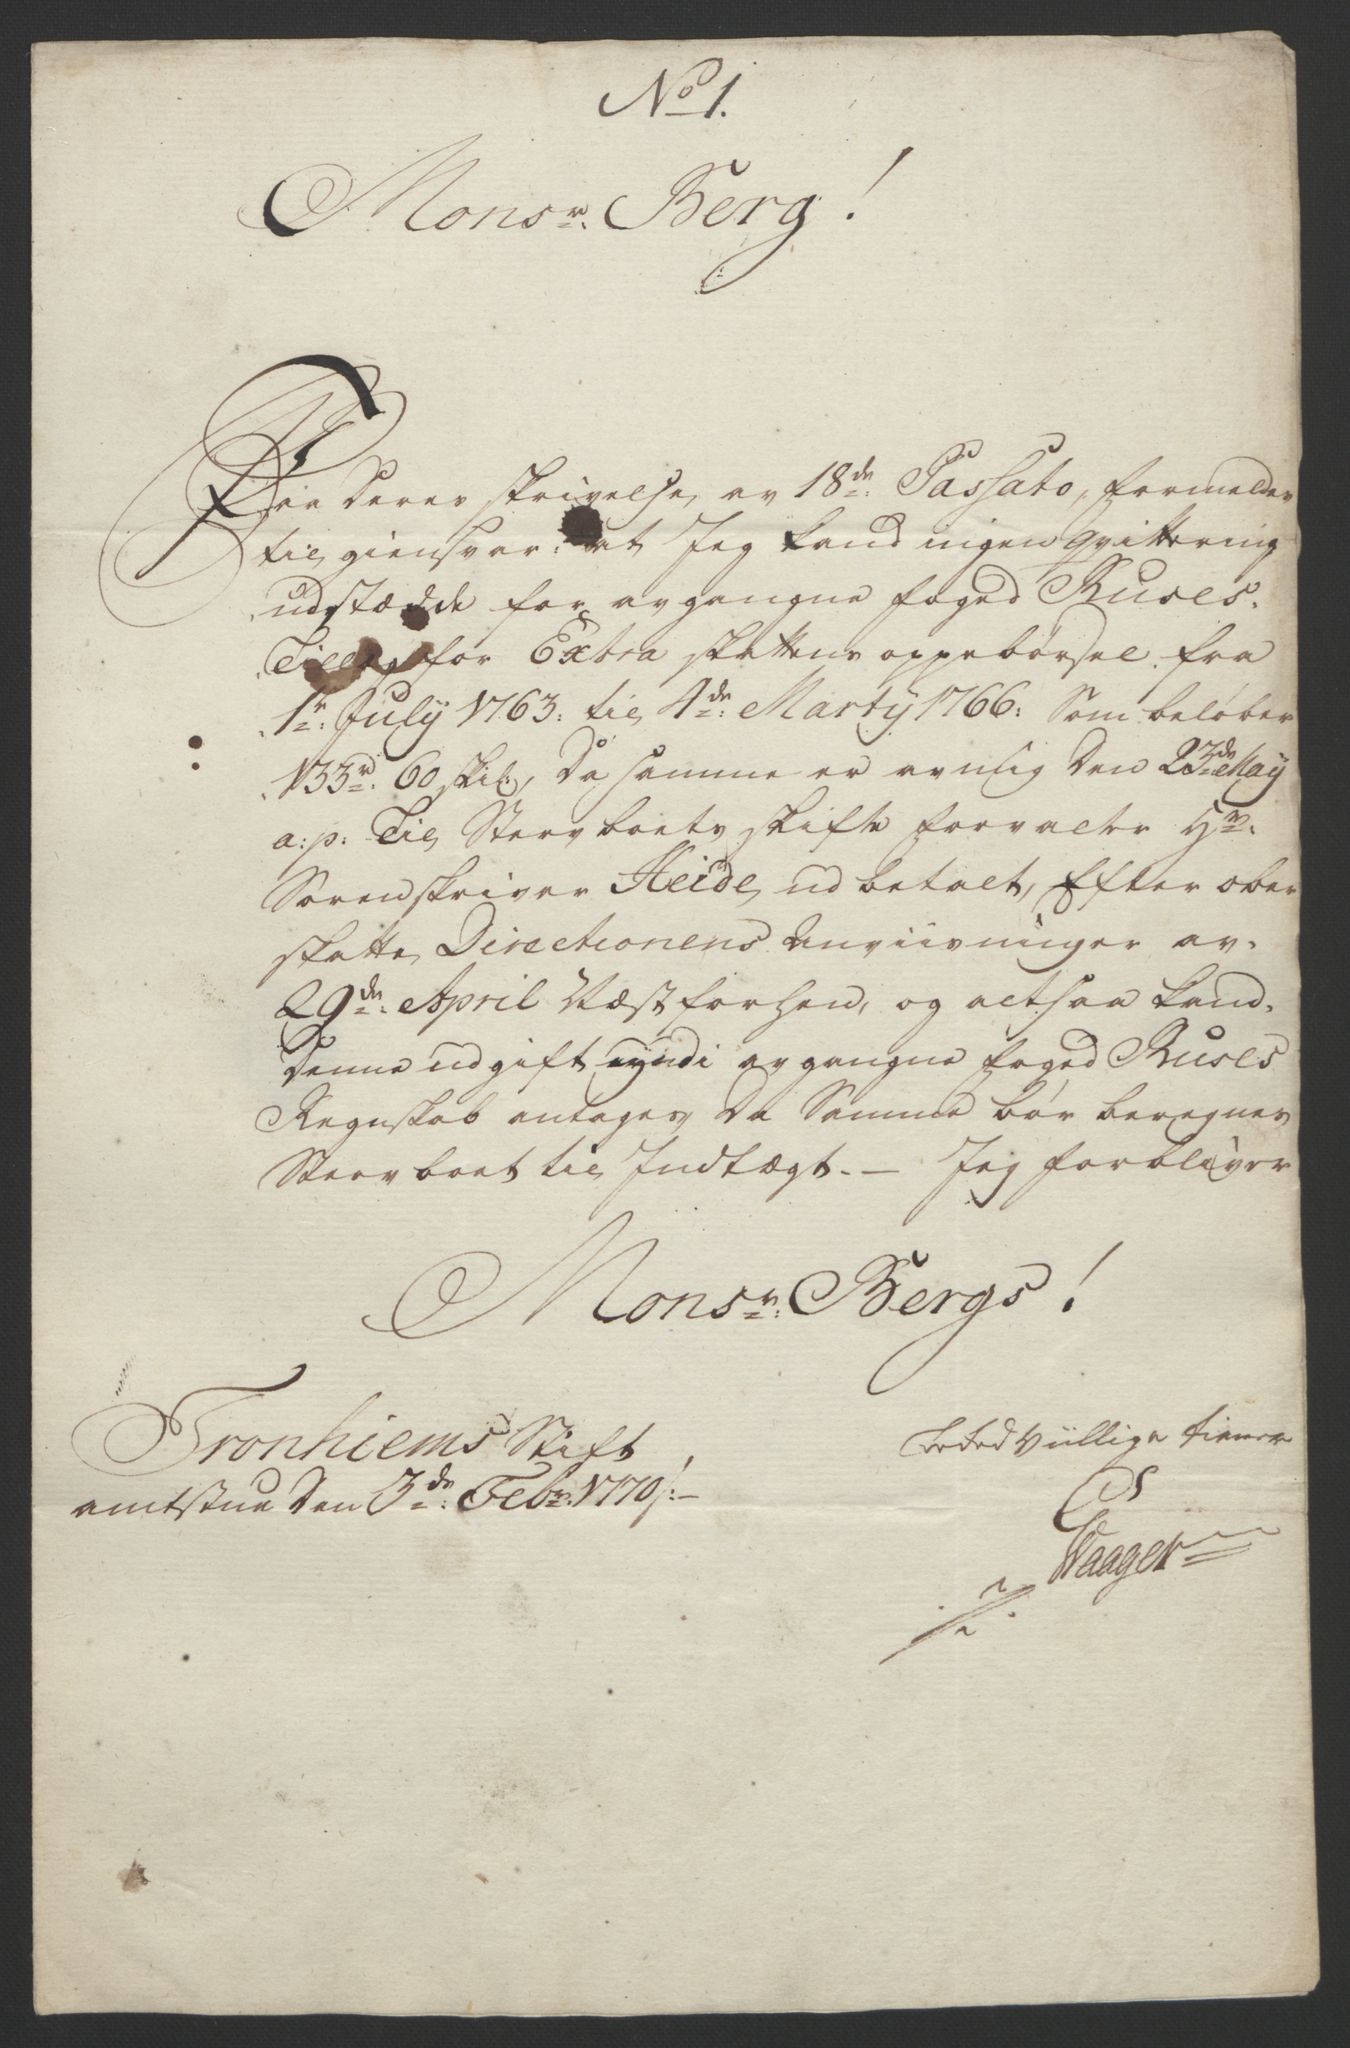 No 1.
Monsr. Berg!
Paa Deres skrivelse av 18de: Passato, formeldes
til giensvar: at Jeg kand ingen Qvittering
udstædde for avgangne foged Ruses
Tillæg for Extra skattens oppebørsel fra
1r: July 1763: til 4de: Marty 1766: Som beløber
133rd. 60 skil:, Da samme er av mig Den 23de May
a: p: Til Stervboets skifte forvalter Hr.
Sorenskriver Heide, udbetalt, Efter ober
skatte Directionens Anviisninger av
29de: April Næstforhen, og altsaa kand
Denne udgift eyndi avgangne foged Ruses
Regnskab antages, Da Samme bør beregnes
Stervboet til Indtægt. — Jeg forbliver
Monsr. Bergs!
Tronhiems Stift
amtstue Den 3de: Febr: 1770/: —
beredvillige tiener
Waager